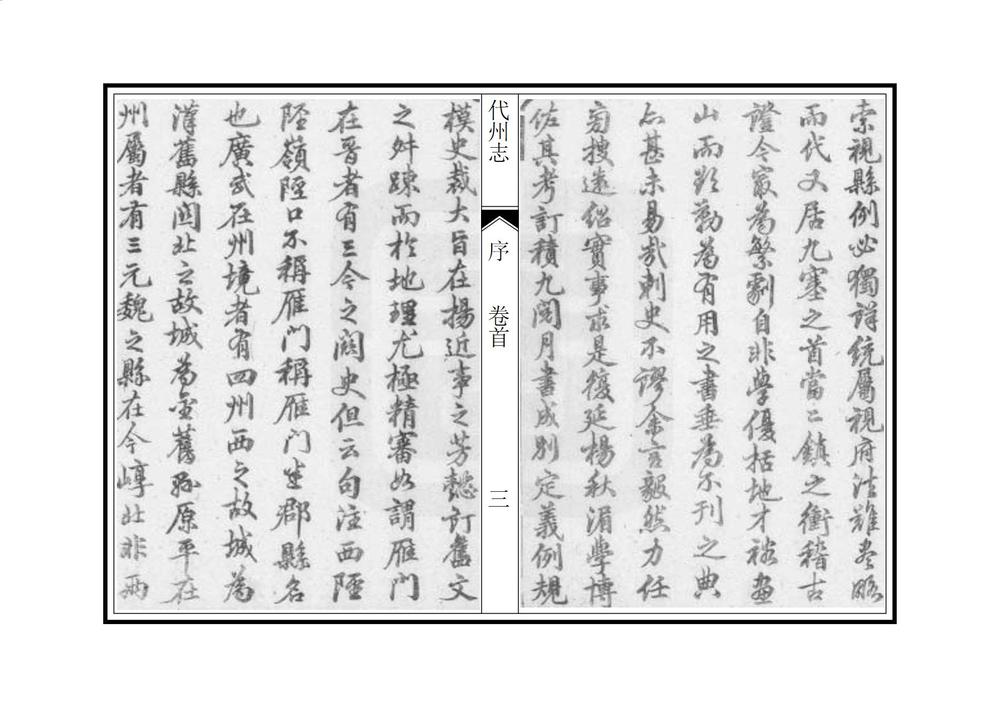 索視縣例必獨詳統屬視府法難盡略
而代又居九塞之首當二鎮之衝稽古
證今最為繁劇自非學優括地才裕畫
山而欲勒為有用之書垂為不刊之典
亦甚未易哉刺史不謬余言毅然力任
旁搜遠紹實事求是復延楊秋湄學博
佐其考訂積九閱月書成別定義例規
代州志
序
卷首
三
模史裁大旨在揚近事之芳懿訂舊文
之舛踈而於地理尤極精審如謂雁門
在晋者有三今之關史但云句注西陘
陘嶺陘口不稱雁門稱雁門皆郡縣名
也廣武在州境者有四州西之故城為
漢舊縣關北之故城為金舊縣原平在
州屬者有三元魏之縣在今崞北非兩